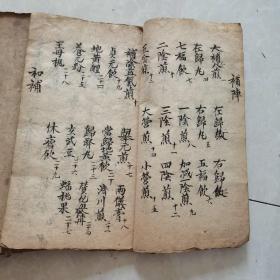 補陣
大補元煎 左歸飲 右歸飲
左歸丸 右歸丸 五福飲
七福飲 一陰煎 加減一陰煎
二陰煎 三陰煎 四陰煎
五陰煎 大營煎 小營煎
補陰益氣煎 舉元煎 兩儀膏
貞元飲 當歸地黃飲 濟川煎
地黃醴 歸腎丸 贊化血餘丹
養元粉 玄武豆 蟠桃果
王母桃 休瘧飲
初補